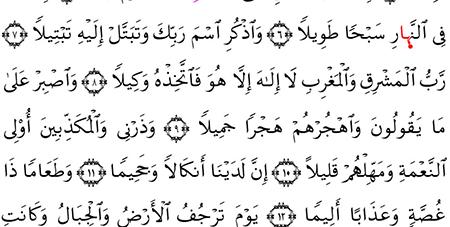 فِى ٱلنَّهَارِ سَبْحًا طَوِيلًا ﴿٦﴾ وَٱذْكُرِ ٱسْمَ رَبِّكَ وَتَبَتَّلْ إِلَيْهِ تَبْتِيلًا ﴿٧﴾
رَّبُّ ٱلْمَشْرِقِ وَٱلْمَغْرِبِ لَآ إِلَـٰهَ إِلَّا هُوَ فَٱتَّخِذْهُ وَكِيلًا ﴿٨﴾ وَٱصْبِرْ عَلَىٰ
مَا يَقُولُونَ وَٱهْجُرْهُمْ هَجْرًا جَمِيلًا ﴿٩﴾ وَذَرْنِى وَٱلْمُكَذِّبِينَ أُو۟لِى
ٱلنَّعْمَةِ وَمَهِّلْهُمْ قَلِيلًا ﴿١٠﴾ إِنَّ لَدَيْنَآ أَنكَالًا وَجَحِيمًا ﴿١١﴾ وَطَعَامًا ذَا
غُصَّةٍ وَعَذَابًا أَلِيمًا ﴿١٢﴾ يَوْمَ تَرْجُفُ ٱلْأَرْضُ وَٱلْجِبَالُ وَكَانَتِ